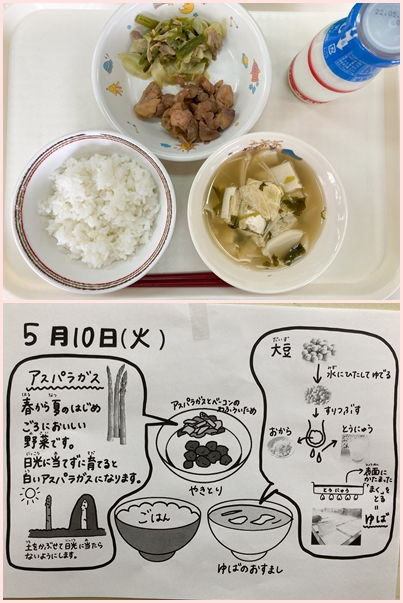 22.05
5月10日(火)
アスパラガス
春から夏のはじめ
ごろにおいしい
野菜です。
日光に当てずに育てると
白いアスパラガスになります。
土をかぶせて日光に当たら
ないようにします。
アスパラガスとベーコンの
やきとり
ごはん
ゆばのおすまし
だいず
大豆
水にひたしてゆでる
すりつぶす
おから
とうにゅう
表面に
かたまった
「まく」を
とる
とうにゅう
ゆば